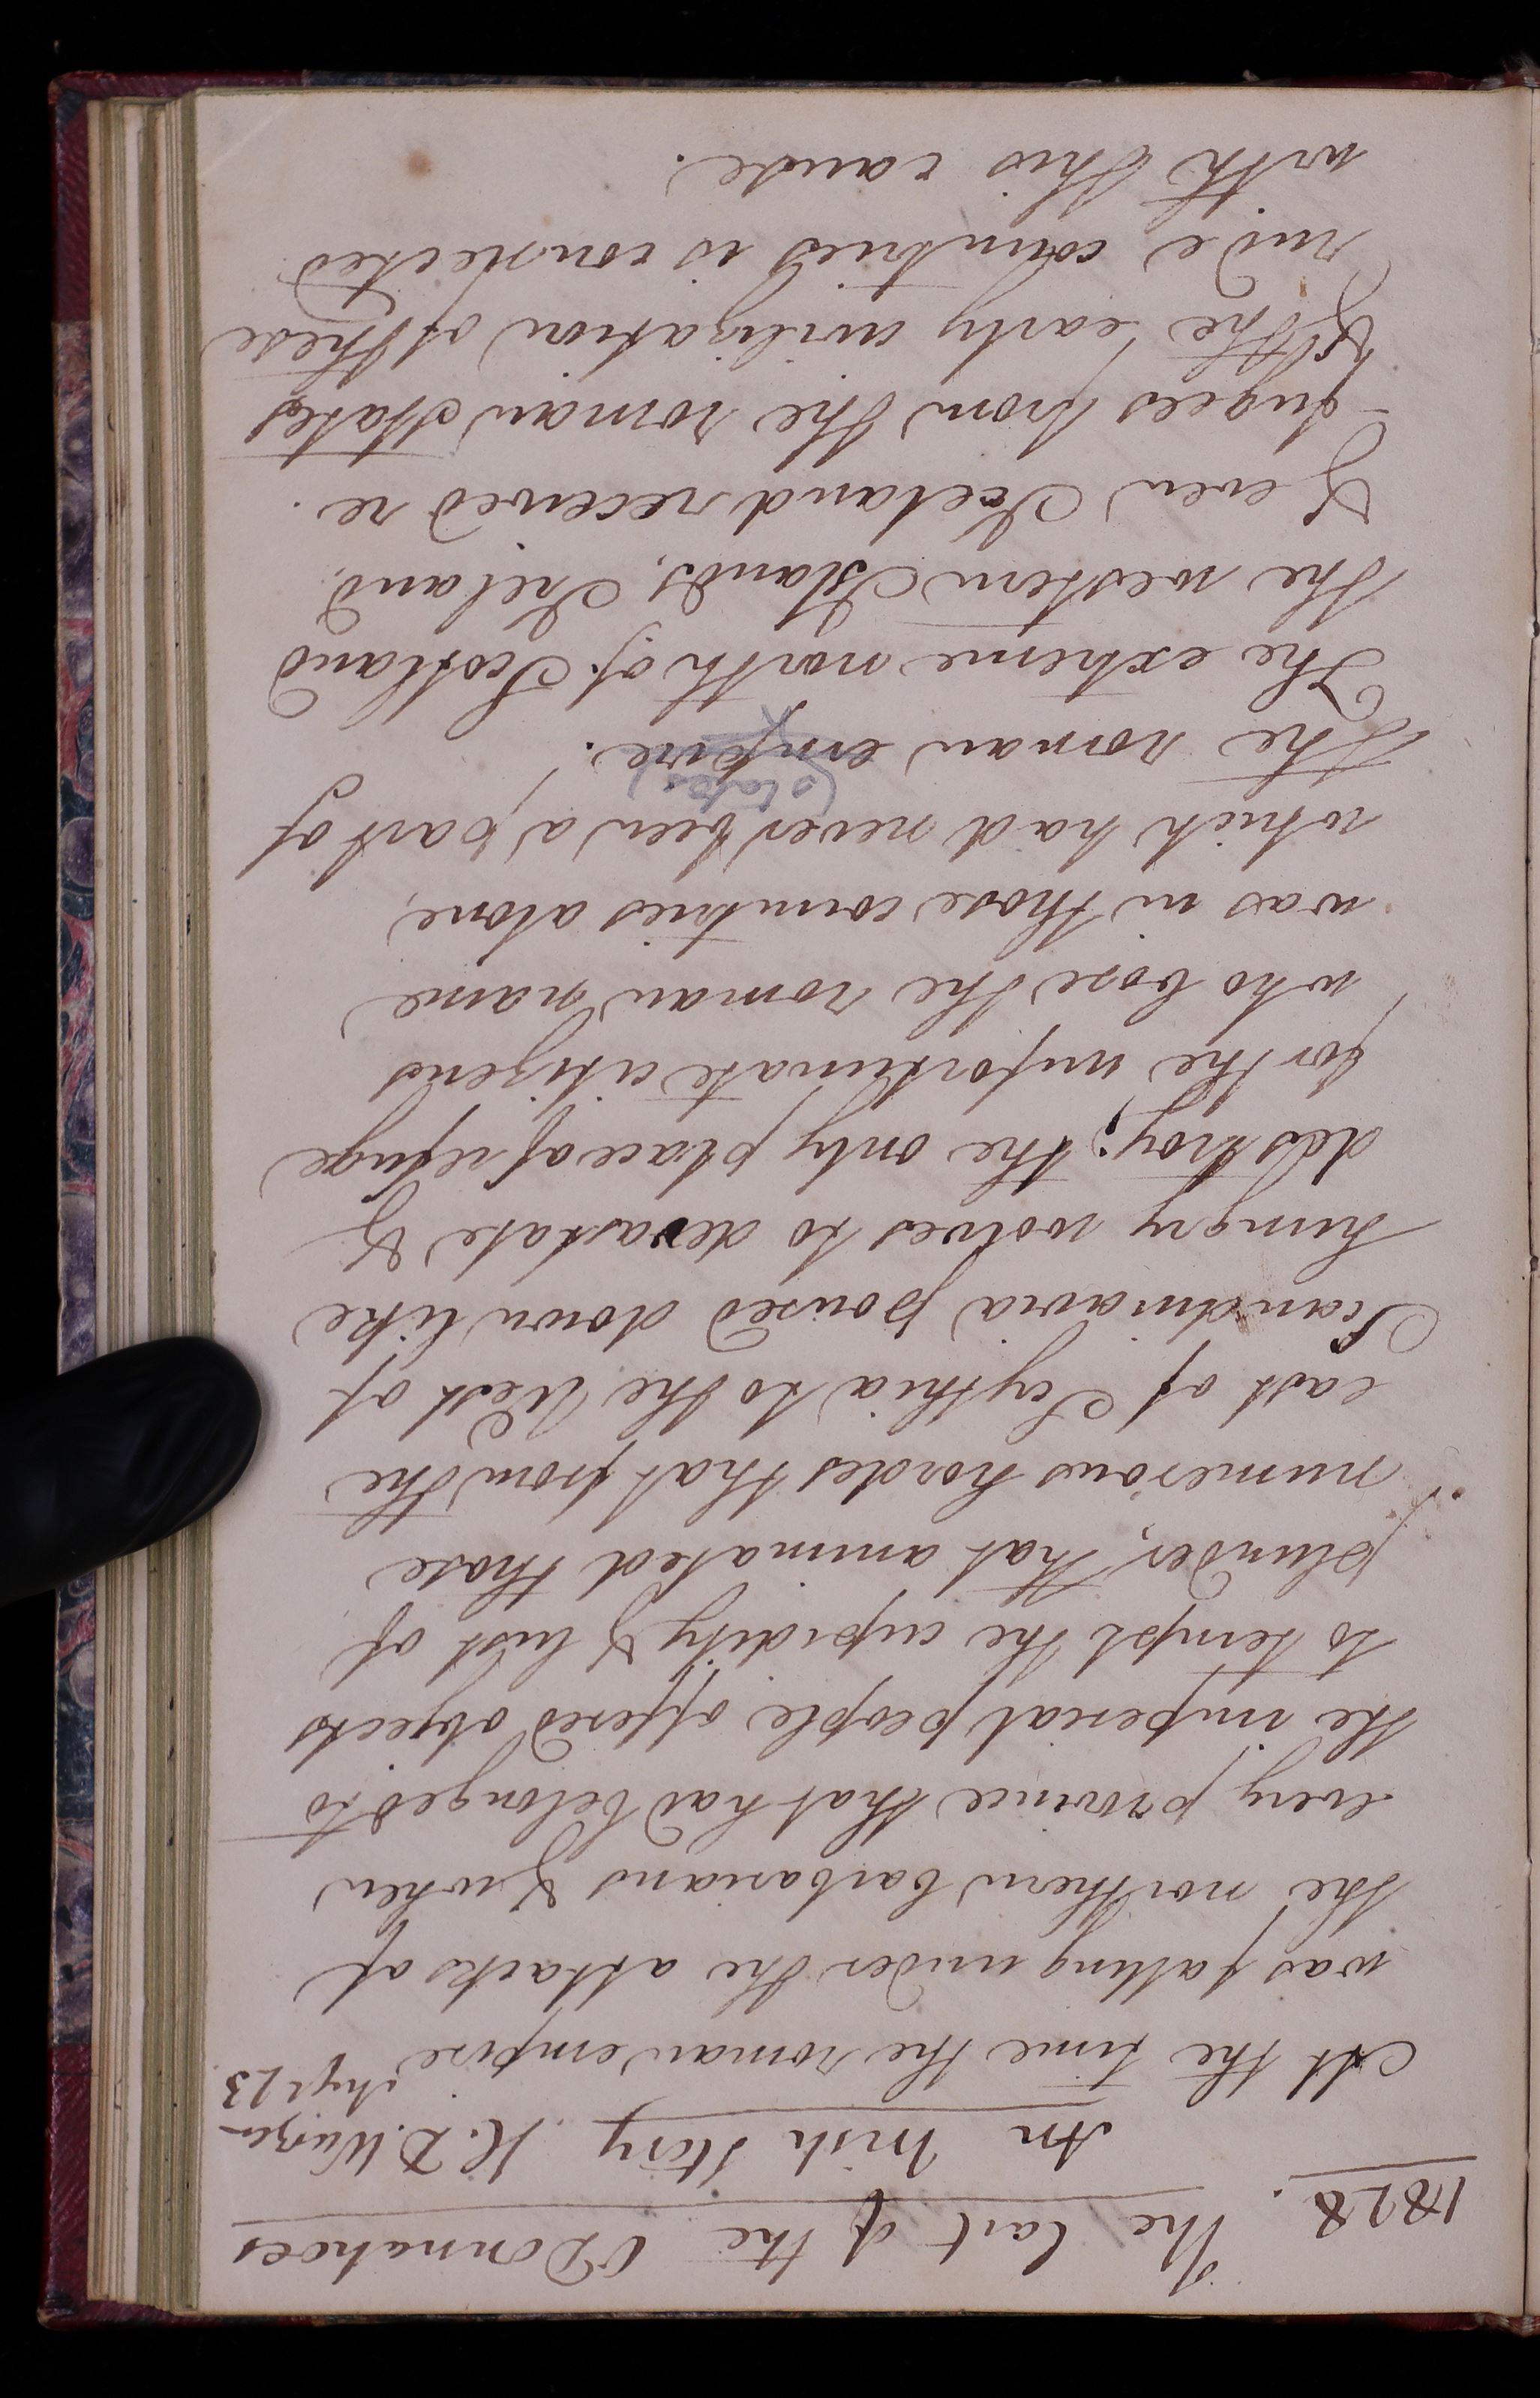 1828. The last of the O'Donnahoes
An Irish Story. H. D.
At the time the roman empire
was falling under the attacks of
the northern barbarians & when
every province that had belonged to
the imperial people offered objects
to tempt the cupidity & lust of
plunder, that animated those
numerous hordes that from the
east of Scythia to the West of
Scandinavia poured down like
hungry wolves to devastate &
destroy; the only place of refuge
for the unfortunate citizens
who bore the roman name
was in those countries alone,
which had never been a part of
(state)
the roman empire.
The extreme north of Scotland
the western Islands, Ireland,
& even Iceland received re-
-fugees from the roman states
& the early civilization of these
rude countries is connected
with this cause.